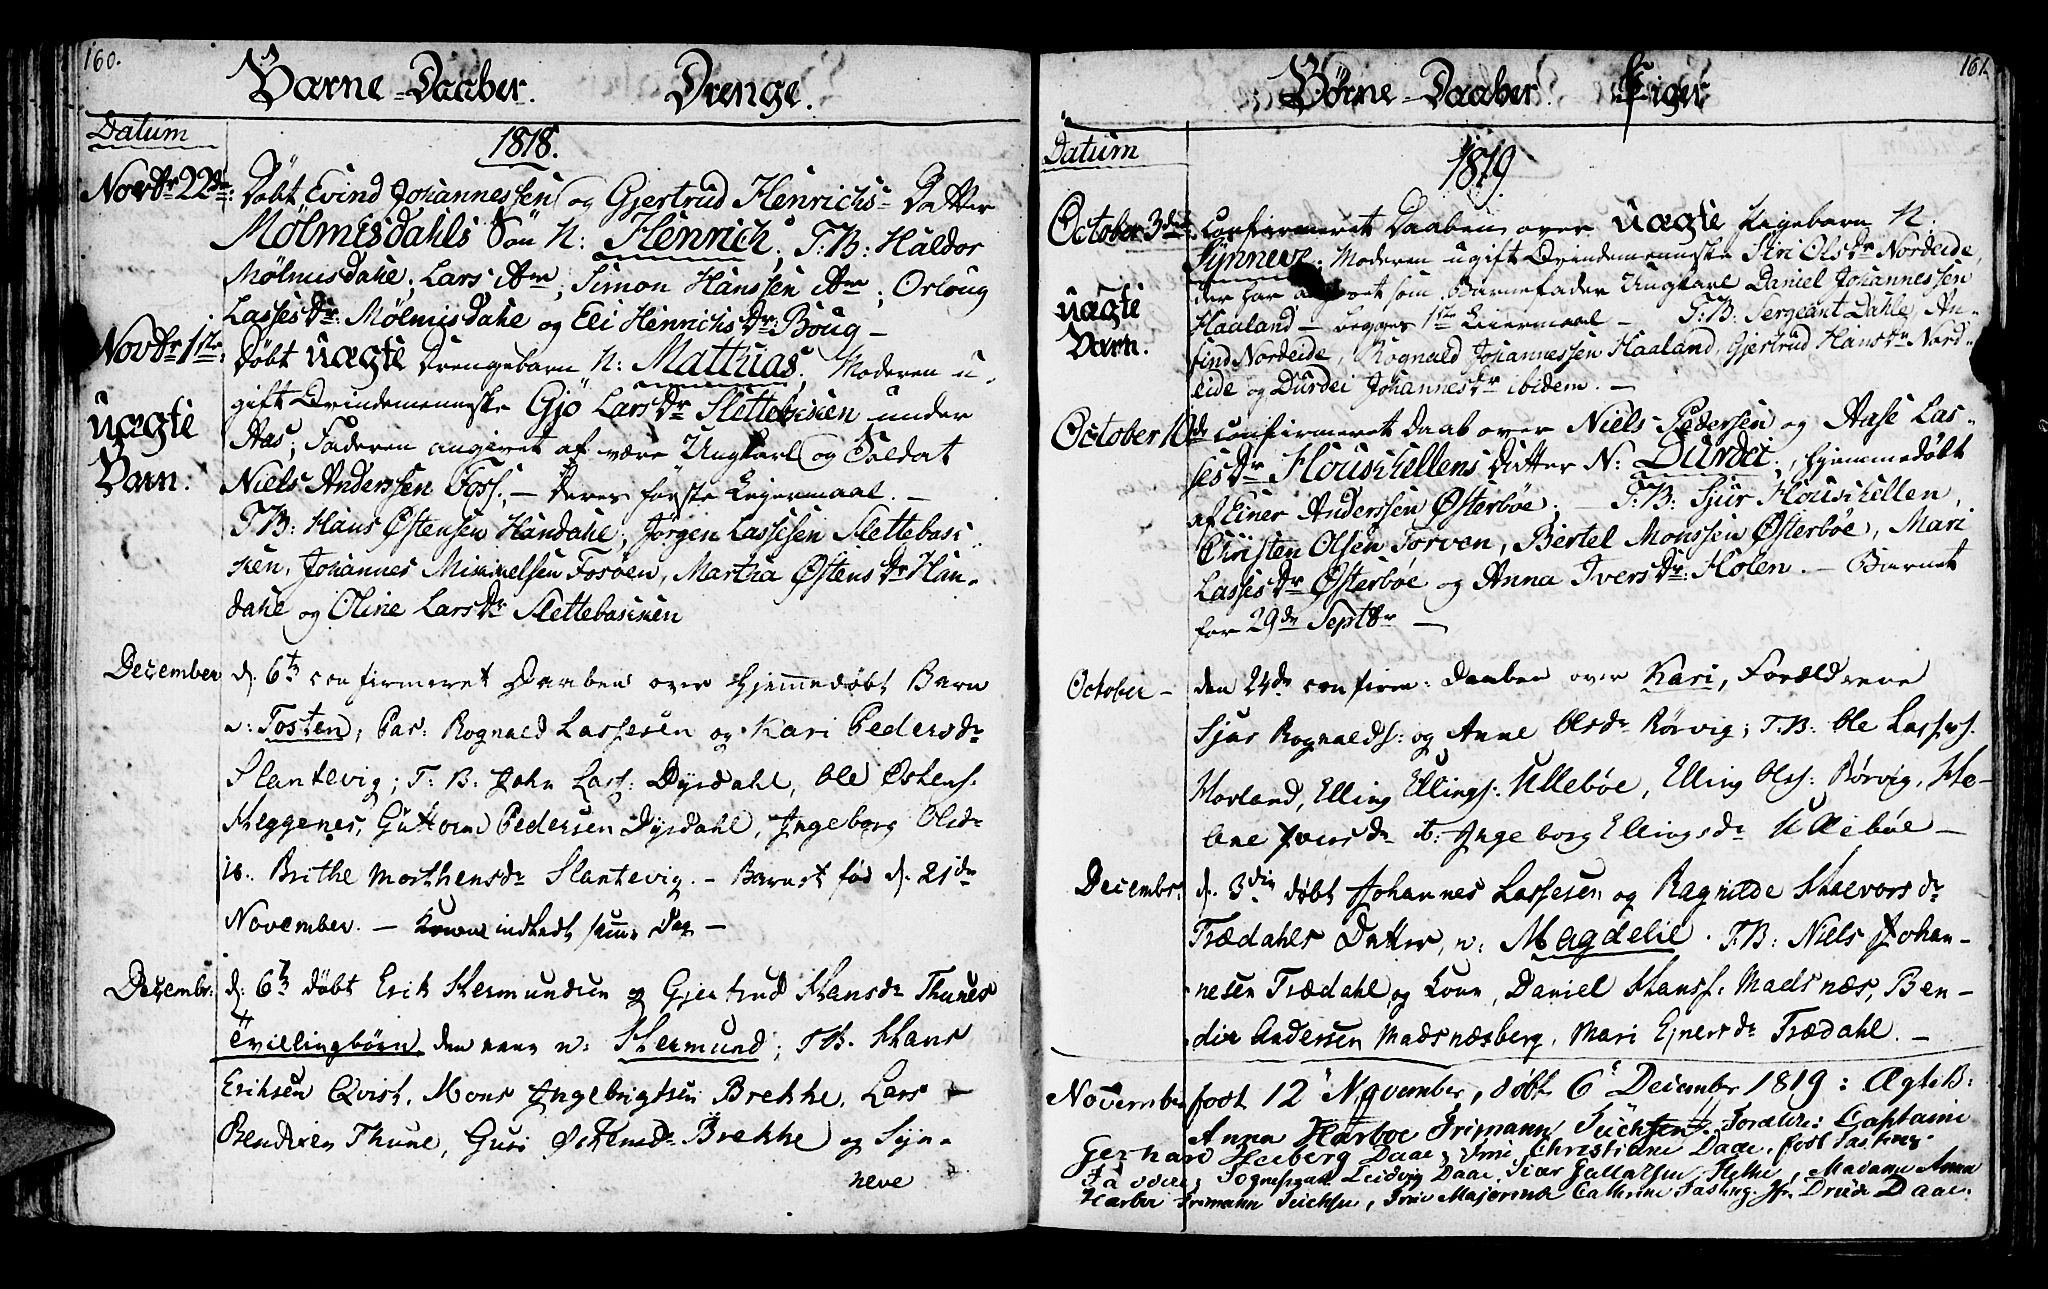 160.
Barne-Daaber. Drenge.
Datum
1818.
Novbr 22de: Döbt Evind Johannessen og Gjertrud Henrichs-Datter
Mölmisdahls Sön N: Henrich; T.B: Haldor
Mölmisdahl; Lars ibm; Simon Hanssen ibm; Orloug
Lasses dr: Mölmisdahl og Eli Henrichs dr: Boug –
Novbr 1ste: döbt uægte Drengebarn N: Matthias. Moderen u-
gift Qvindemenneske Gjö Lars dr Slettebakken under
uægte
Barn.
Aas; Faderen angivet af være Ungkarl og Soldat
Niels Anderssen Foss. – Deres förste Leiermaal. –
T.B: Hans Østensen Handahl, Jørgen Lassesen Slettebak-
ken, Johannes Mikkelsen Fosøen, Martha Østens dr Han-
dahl og Oline Lars dr Slettebakken
December d. 6te confirmeret Daaben over Hjemmedøbt Barn
n: Tosten; Par: Rognald Lassesen og Kari Pedersdr
Slantevig; T.B: John Lass: Dysdahl, Ole Østens.
Heggenes, Guttorm Pedersen Dysdahl, Ingeborg Olsdr
ib. Brithe Morthensdr Slantevig. – Barnet fød d. 21de
November. – Konen indledt samme Dag –
Decembr: d. 6te døbt Erik Hermundsen og Gjertrud Hansdr Thunes
Tvillingbörn, den eene n: Hermund; T.B. Hans
Eriksen Qvist, Mons Ingebrigtsen Brekke, Lars
Bendixen Thune, Guri Østensdr Brekke og Syn-
neve
161.
Börne-Daaber. Piger
Datum
1819
October 3die Confirmeret Daaben over uægte Pigebarn N:
Synneve. Moderen ugift Qvindemenneske Siri Ols dr Nordeide,
der har angivet som Barnefader Ungkarl Daniel Johannessen
uægte
Barn.
Haaland – begges 1ste Leiermaal – T.B: Sergeant Dahle, An-
find Nordeide, Rognald Johannessen Haaland, Gjertrud Hans dr Nord-
eide og Durdei Johannes dr ibidem. –
October 10de confirmeret Daab over Niels Pedersen og Aase Las-
ses dr Houskellens Datter N: Durdei, hjemmedöbt
af Einer Anderssen Østerbøe. – T.B: Sjur Houskellen,
Christen Olsen Torven, Bertel Monssen Østerbøe, Mari
Lasses dr Østerbøe og Anna Ivers dr: Holen. – Barnet
før 29de Septbr –
October – den 24de confirm: Daaben over Kari, Forældrene
Sjur Rognalds: og Anne Olsdr Rörvig; T.B: Ole Lasses.
Hovland, Elling Ellings: Ullebøe, Elling Ols: Rörvig, He-
lene Iversdr ib: Ingeborg Ellingsdr Ullebøe –
Decembr: d. 3die døbt Johannes Lassesen og Ragnilde Halvorsdr
Trædahls Datter, n: Magdelie. T.B: Niels Johan-
nesen Trædahl og Kone, Daniel Hanss: Madsnæs, Ben-
dix Andersen Madsnæsberg, Mari Ejnersdr Trædahl. –
November født 12 November, döbt 6 December 1819: Ægte B:
Anna Harboe Frimann Tuchsen. Forældre: Captaine
Gerhard Heiberg Daae, Christiane Daae, født Fasting
Faddere: Sogneprest Ludvig Daae, Madame Anna
Harboe Frimann Tuchsen, Majorinde Cathrine Fasting, Jfr Drude Daae.